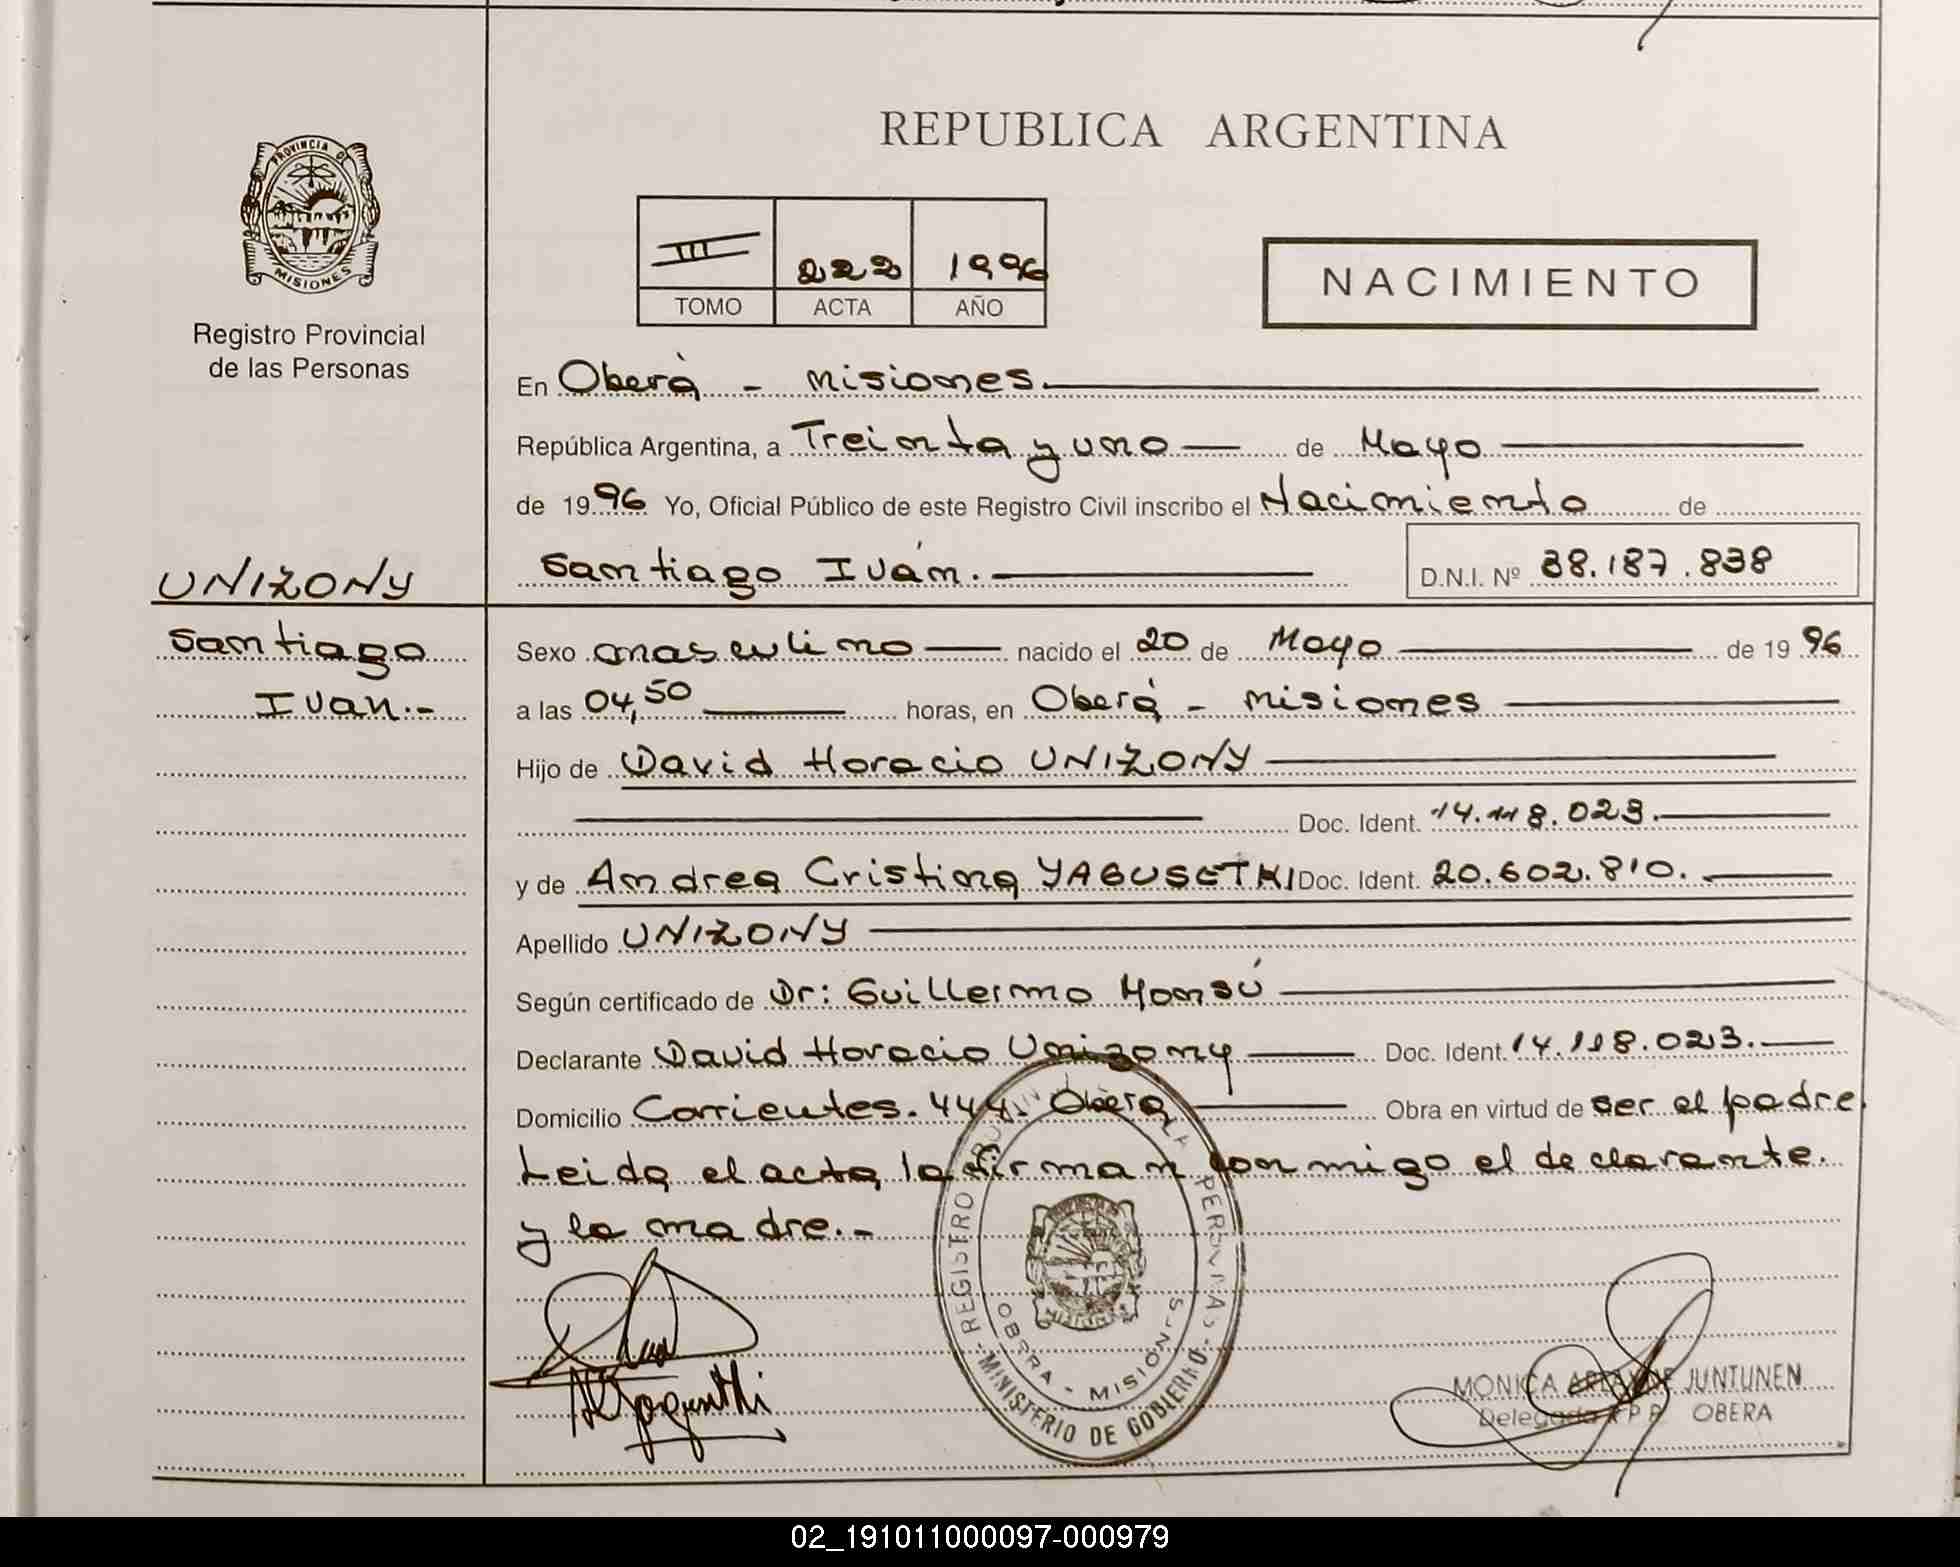 REPUBLICA ARGENTINA
PROVINCIA DE
MISIONES
Registro Provincial
de las Personas
III 222 1996
TOMO ACTA AÑO
NACIMIENTO
En Oberá - Misiones.
República Argentina, a Treinta y uno de Mayo
de 1996 Yo, Oficial Público de este Registro Civil inscribo el Nacimiento de
Santiago Iván. D.N.I. Nº 38.187.838
UNIZONY
Santiago
Ivan.-
Sexo masculino nacido el 20 de Mayo de 1996
a las 04,50 horas, en Oberá - Misiones
Hijo de David Horacio UNIZONY
Doc. Ident. 14.118.023.
y de Andrea Cristina YAGUSETHI Doc. Ident. 20.602.810.
Apellido UNIZONY
Según certificado de Dr: Guillermo Monsú
Declarante David Horacio Unizony Doc. Ident. 14.118.023.
Domicilio Corrientes. 444. Oberá Obra en virtud de ser el padre.
Leida el acta, la firman conmigo el declarante.
y la madre.-
REGISTRO PERSONAS
OBERA - MISIONES
MINISTERIO DE GOBIERNO
MONICA JUNTUNEN
Delegada R P P OBERA
02_191011000097-000979